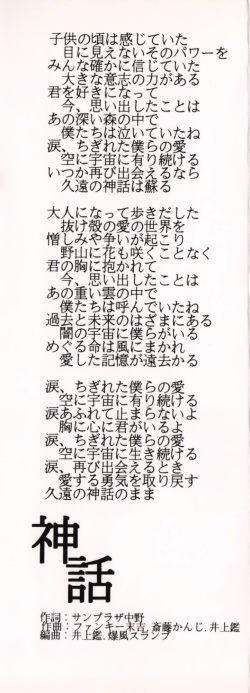 子供の頃は感じていた
目に見えないそのパワーを
みんな確かに信じていた
大きな意志の力がある
君を好きになって
今、思い出したことは
あの深い森の中で
僕たちは泣いていたね
涙、ちぎれた僕らの愛
空に宇宙に有り続ける
いつか再び出会えるなら
久遠の神話は蘇る
大人になって歩きだした
抜け殻の愛の世界を
憎しみや争いが起こり
野山に花も咲くことなく
君の胸に抱かれて
今、思い出したことは
あの重い雲の中で
僕たちは呼んでいたね
過去と未来のはざまにある
闇の宇宙に僕らがいる
めぐる命は風にまかれ
愛した記憶が遠去かる
涙、ちぎれた僕らの愛
空に宇宙に有り続ける
涙あふれて止まらないよ
胸に心に君がいるよ
涙、ちぎれた僕らの愛
空に宇宙に生き続ける
涙、再び出会えるとき
愛する勇気を取り戻す
久遠の神話のまま
神話
作詞：サンプラザ中野
作曲：ファンキー末吉，斎藤かんじ，井上鑑
編曲：井上鑑，爆風スランプ